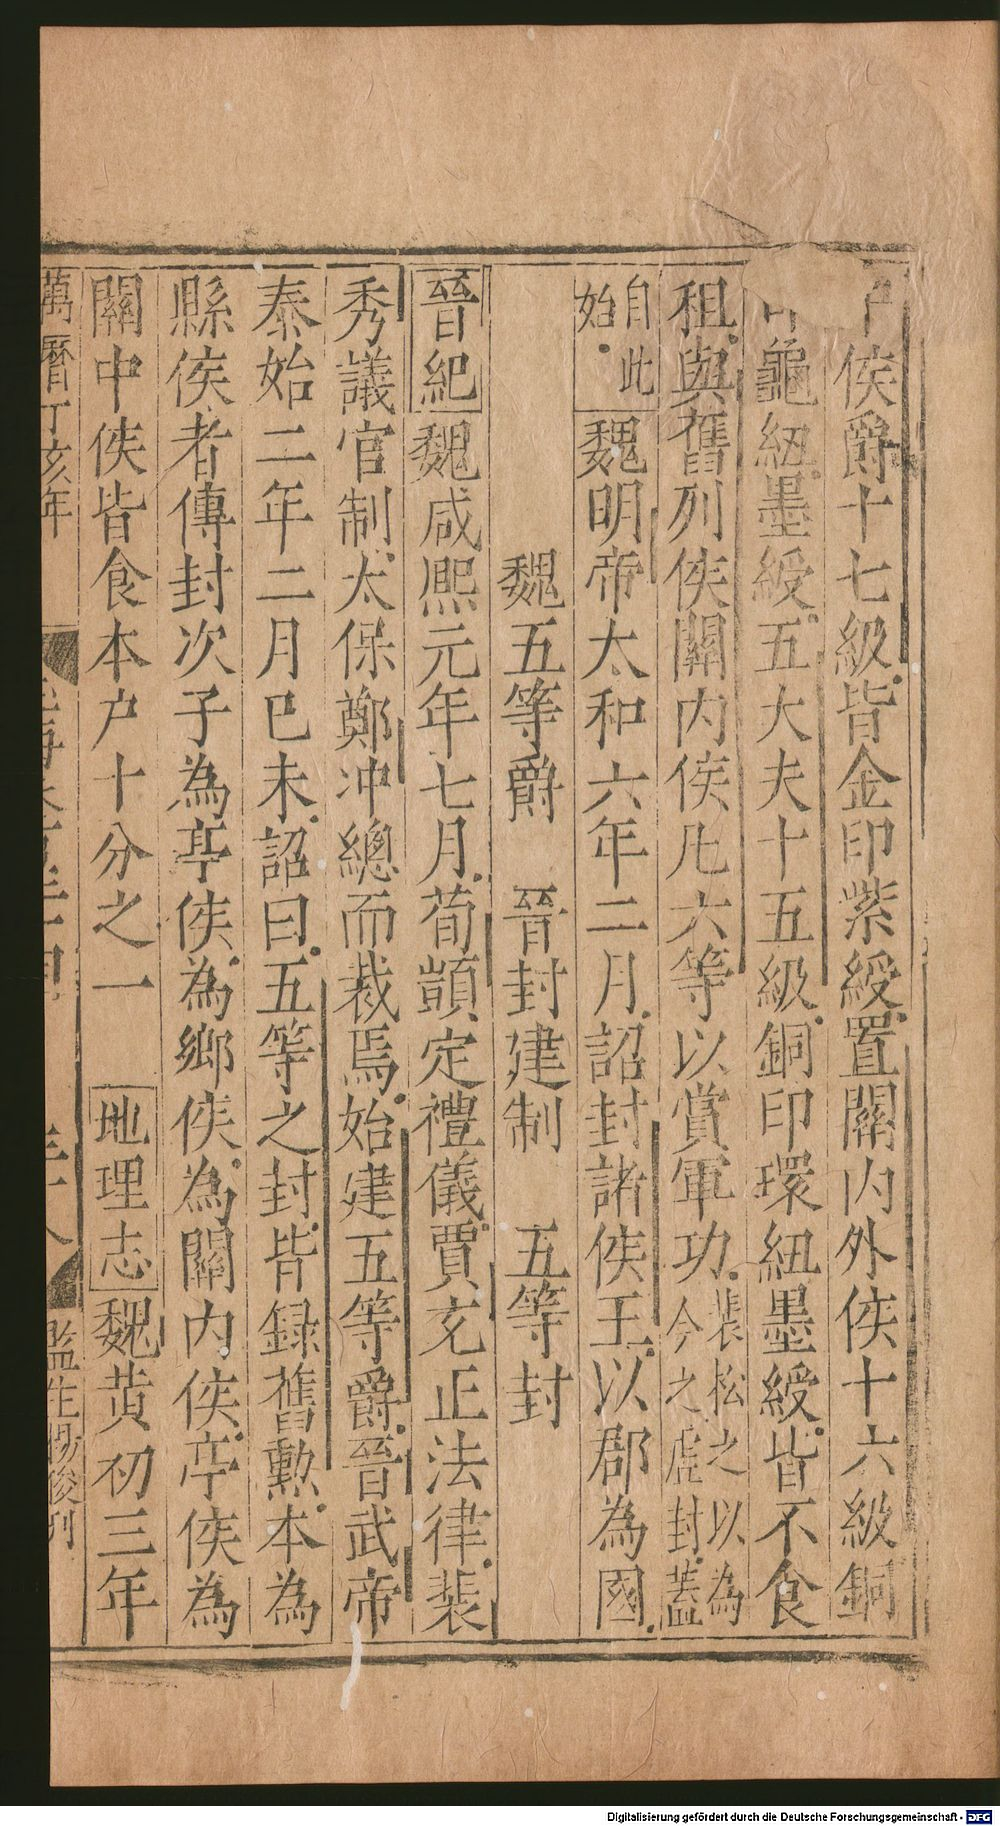 中侯爵十七級皆金印紫綬置關內外侯十六級銅
印龜紐墨綬五大夫十五級銅印環紐墨綬皆不食
租與舊列侯關內侯凡六等以賞軍功裴松之以為今之虛封蓋
自此始魏明帝太和六年二月詔封諸侯王以郡為國
魏五等爵 晉封建制 五等封
晉紀魏咸熙元年七月荀顗定禮儀賈充正法律裴
秀議官制太保鄭冲總而裁焉始建五等爵晉武帝
泰始二年二月巳未詔曰五等之封皆録舊勲本為
縣侯者傳封次子為亭侯為鄉侯為關內侯亭侯為
關中侯皆食本户十分之一 地理志魏黄初三年
萬曆丁亥年
監生楊俊刊
Digitalisierung gefördert durch die Deutsche Forschungsgemeinschaft - DFG